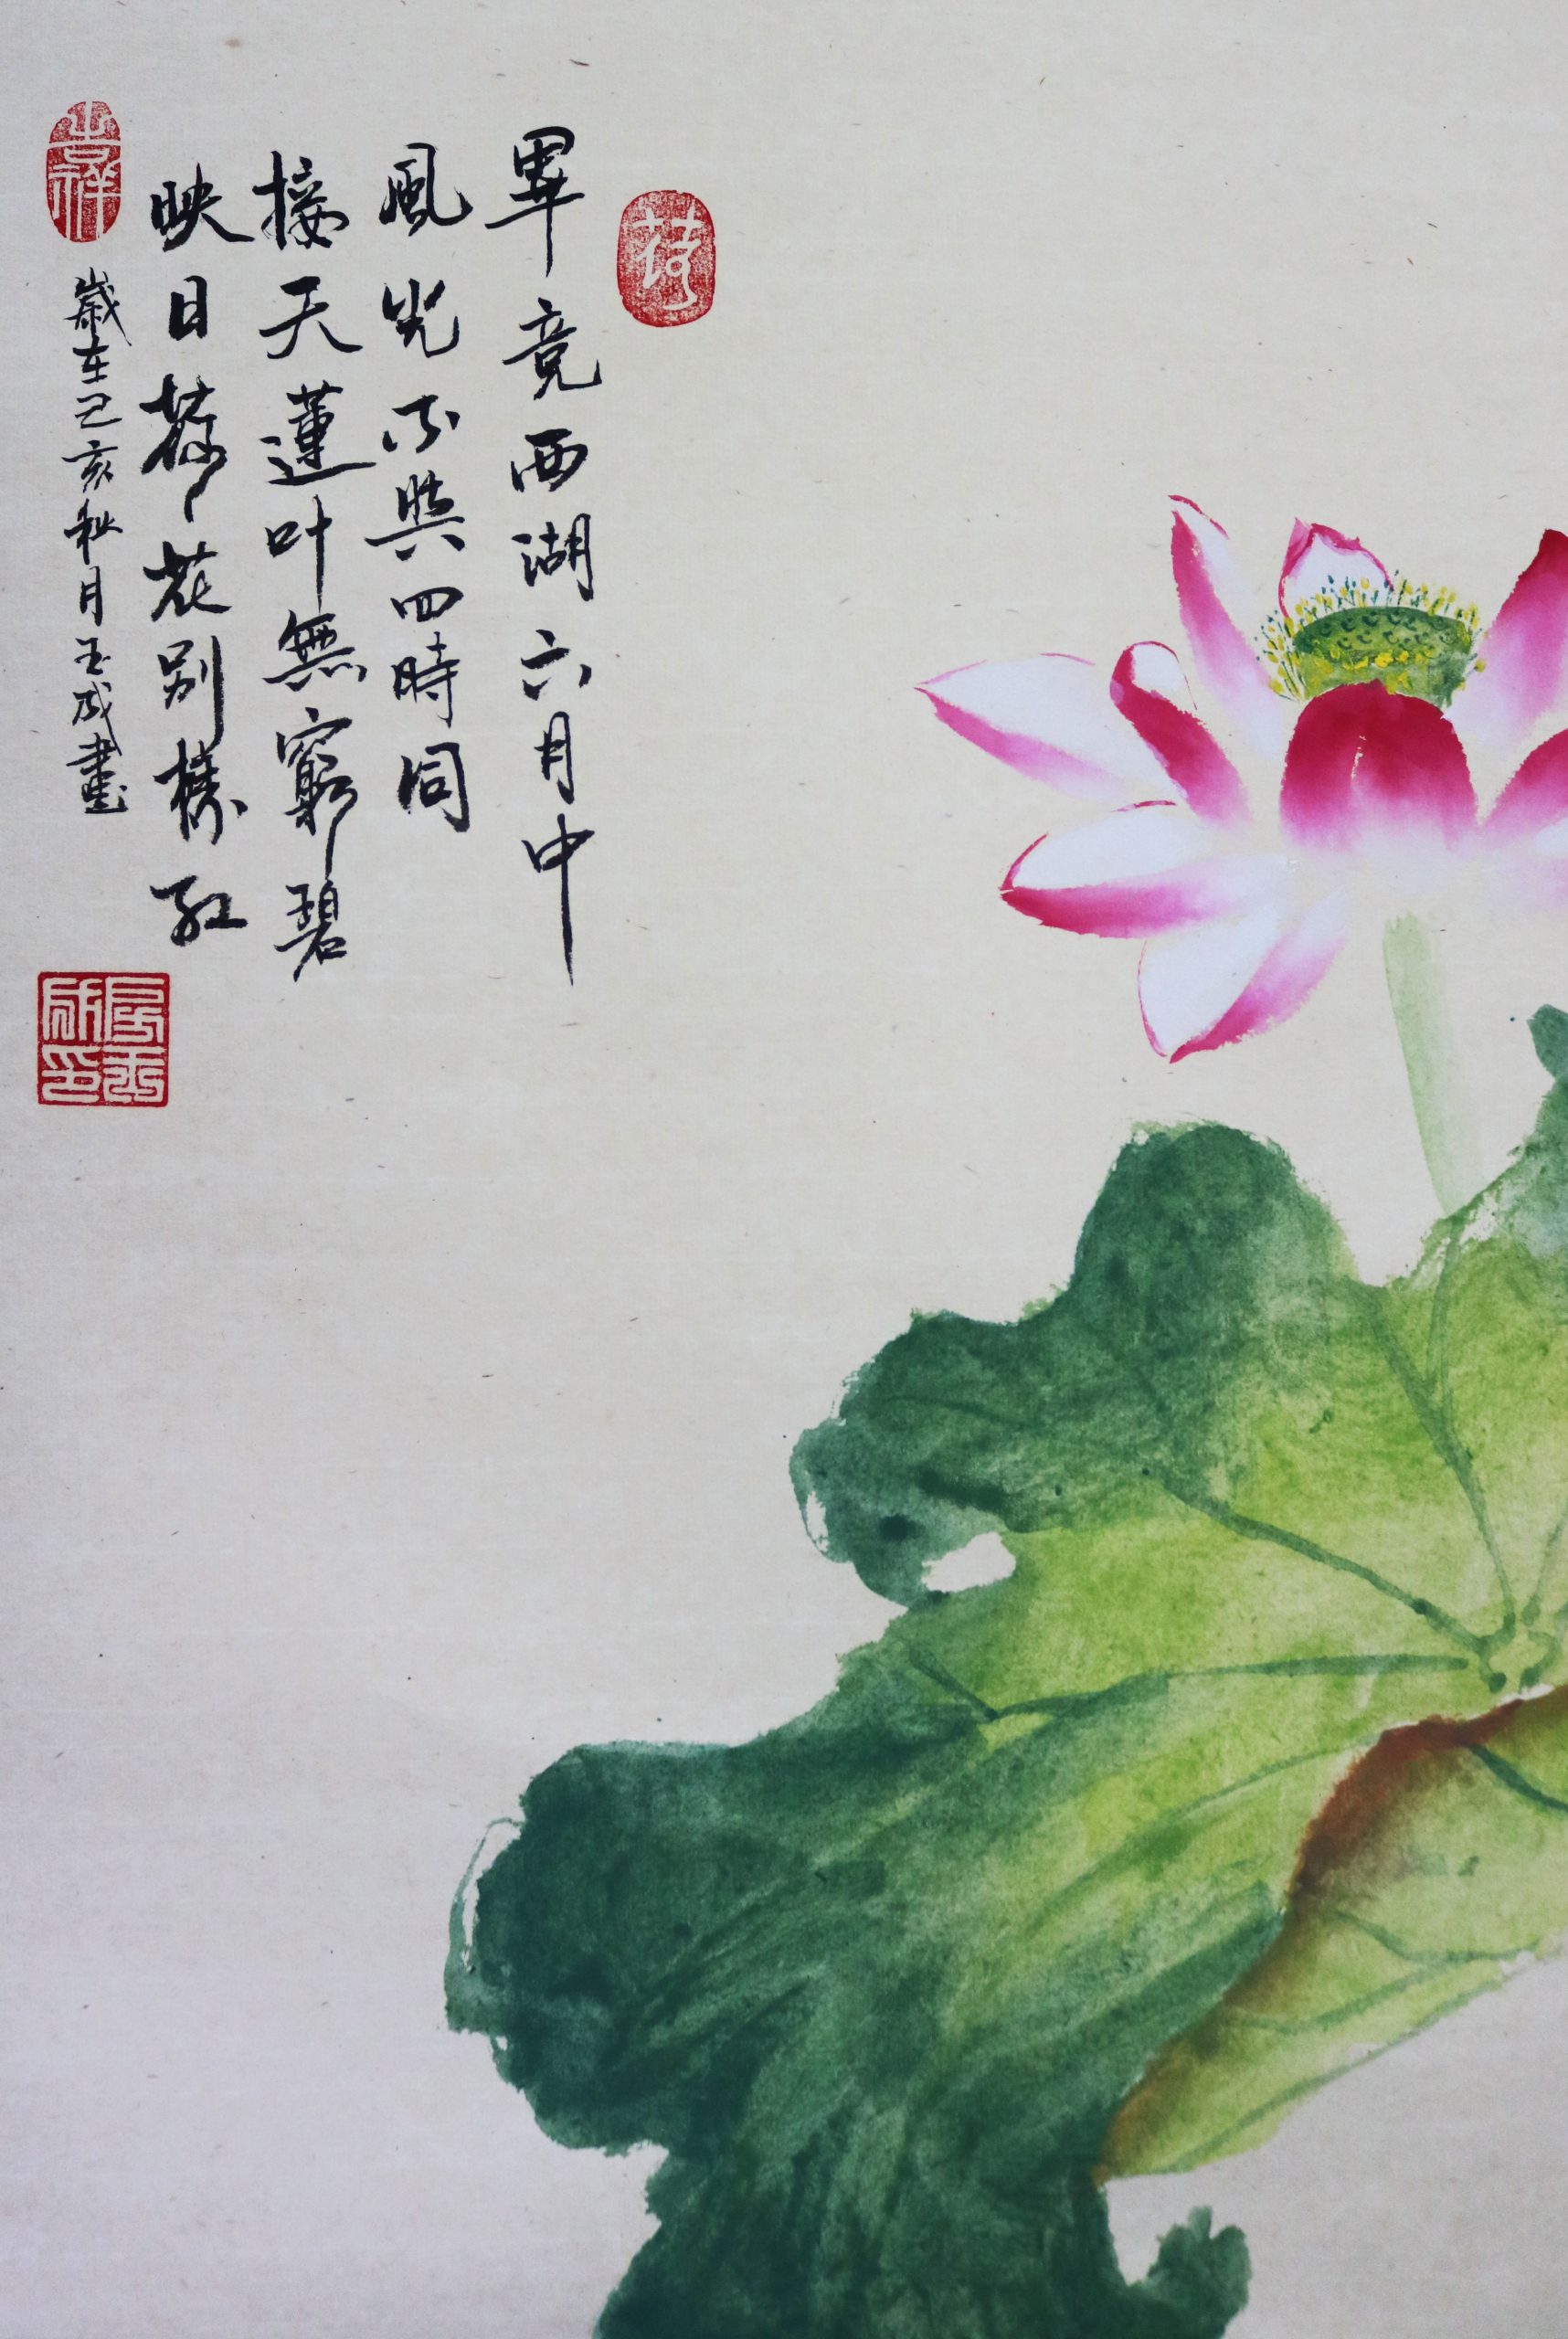 荷
畢竟西湖六月中
風光不與四時同
接天蓮叶無窮碧
映日荷花別樣紅
吉祥
歲在己亥秋月玉成畫